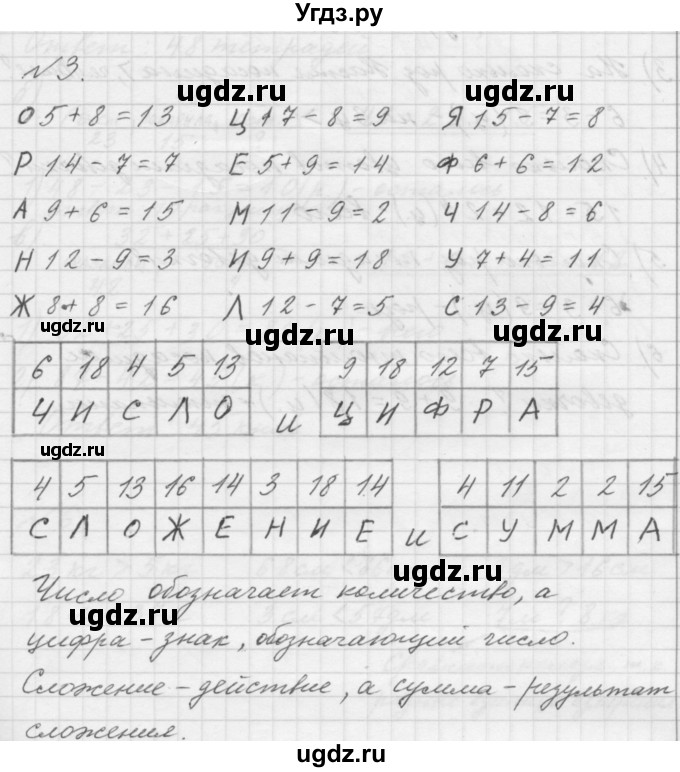 Угдз.ру
№3.
О 5 + 8 = 13 Ц 17 - 8 = 9 Я 15 - 7 = 8
ugdz.ru ugdz.ru
Р 14 - 7 = 7 Е 5 + 9 = 14 Ф 6 + 6 = 12
А 9 + 6 = 15 М 11 - 9 = 2 Ч 14 - 8 = 6
Н 12 - 9 = 3 И 9 + 9 = 18 У 7 + 4 = 11
Ж 8 + 8 = 16 Л 12 - 7 = 5 С 13 - 9 = 4
ugdz.ru ugdz.ru ugdz.ru
6 18 4 5 13 9 18 12 7 15
Ч И С Л О и Ц И Ф Р А
ugdz.ru
4 5 13 16 14 3 18 14 4 11 2 2 15
С Л О Ж Е Н И Е и С У М М А
ugdz.ru
Число обозначает количество, а
ugdz.ru
цифра - знак, обозначающий число.
Сложение - действие, а сумма - результат
сложения.
ugdz.ru